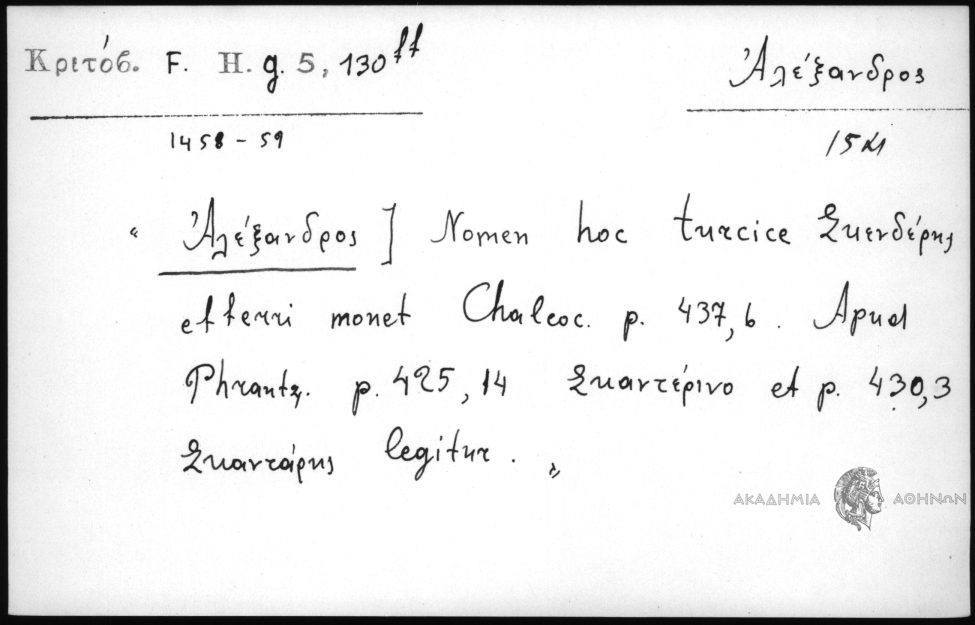 Κριτόβ. F. H. g. 5, 130 ff
Ἀλέξανδρος
1458 - 59
15 21
" Ἀλέξανδρος ] Nomen hoc turcice Σκενδέρης
efferri monet Chalcoc. p. 437, 6. Apud
Phrantz. p. 425, 14 Σκαντέρινο et p. 430,3
Σκαντάρης legitur. "
ΑΚΑΔΗΜΙΑ ΑΘΗΝΩΝ